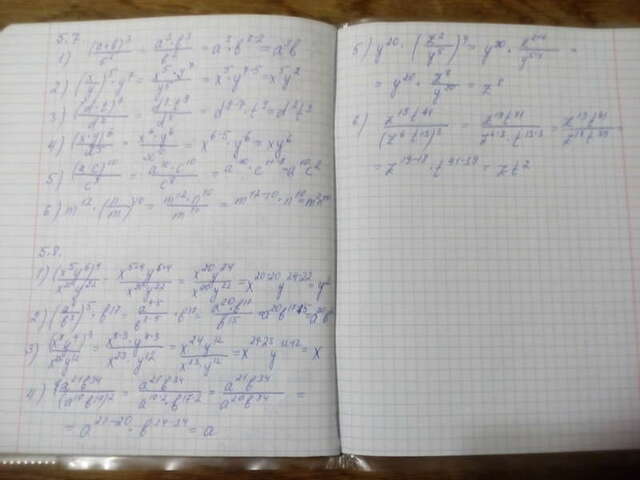 5.7
1) (a·b)³/b² = a³·b³/b² = a³·b³⁻² = a³b
2) (x/y)⁵·y⁷ = x⁵·y⁷/y⁵ = x⁵·y⁷⁻⁵ = x⁵y²
4) (x·y)⁶/x⁵ = x⁶·y⁶/x⁵ = x⁶⁻⁵·y⁶ = xy⁶
5) (a·c)¹⁰/c⁸ = a¹⁰·c¹⁰/c⁸ = a¹⁰·c¹⁰⁻⁸ = a¹⁰c²
6) m¹²·(n/m)¹⁰ = m¹²·n¹⁰/m¹⁰ = m¹²⁻¹⁰·n¹⁰ = m²n¹⁰
5.8.
1) (x⁵y⁶)⁴/x²⁰y²² = x⁵·⁴y⁶·⁴/x²⁰y²² = x²⁰y²⁴/x²⁰y²² = x²⁰⁻²⁰y²⁴⁻²² = y²
3) (x⁸y⁴)³/x²³y¹² = x⁸·³y⁴·³/x²³y¹² = x²⁴y¹²/x²³y¹² = x²⁴⁻²³y¹²⁻¹² = x
4) a²¹b³⁴/(a¹⁰b¹⁷)² = a²¹b³⁴/a¹⁰·²·b¹⁷·² = a²¹b³⁴/a²⁰b³⁴ =
= a²¹⁻²⁰·b³⁴⁻³⁴ = a
5) y²⁰·(z²/y⁵)⁴ = y²⁰·z²·⁴/y⁵·⁴ =
= y²⁰·z⁸/y²⁰ = z⁸
6) z¹⁹t⁴¹/(z⁶t¹³)³ = z¹⁹t⁴¹/z⁶·³·t¹³·³ = z¹⁹t⁴¹/z¹⁸t³⁹ =
= z¹⁹⁻¹⁸·t⁴¹⁻³⁹ = zt²